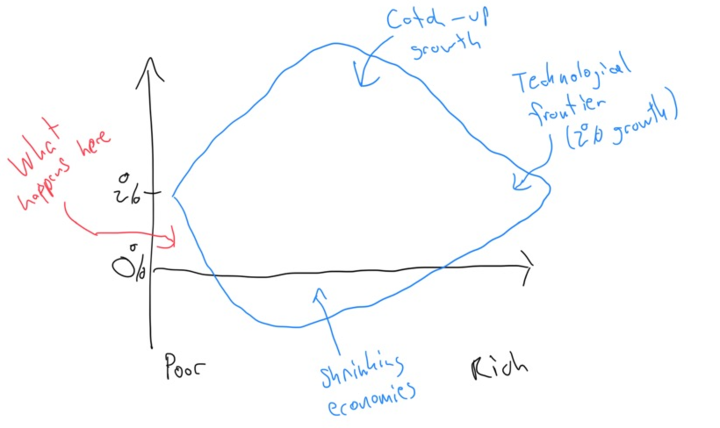 Catch-up
growth
Technological
frontier
(2% growth)
What
happens here
2%
0%
Poor
Rich
Shrinking
economies